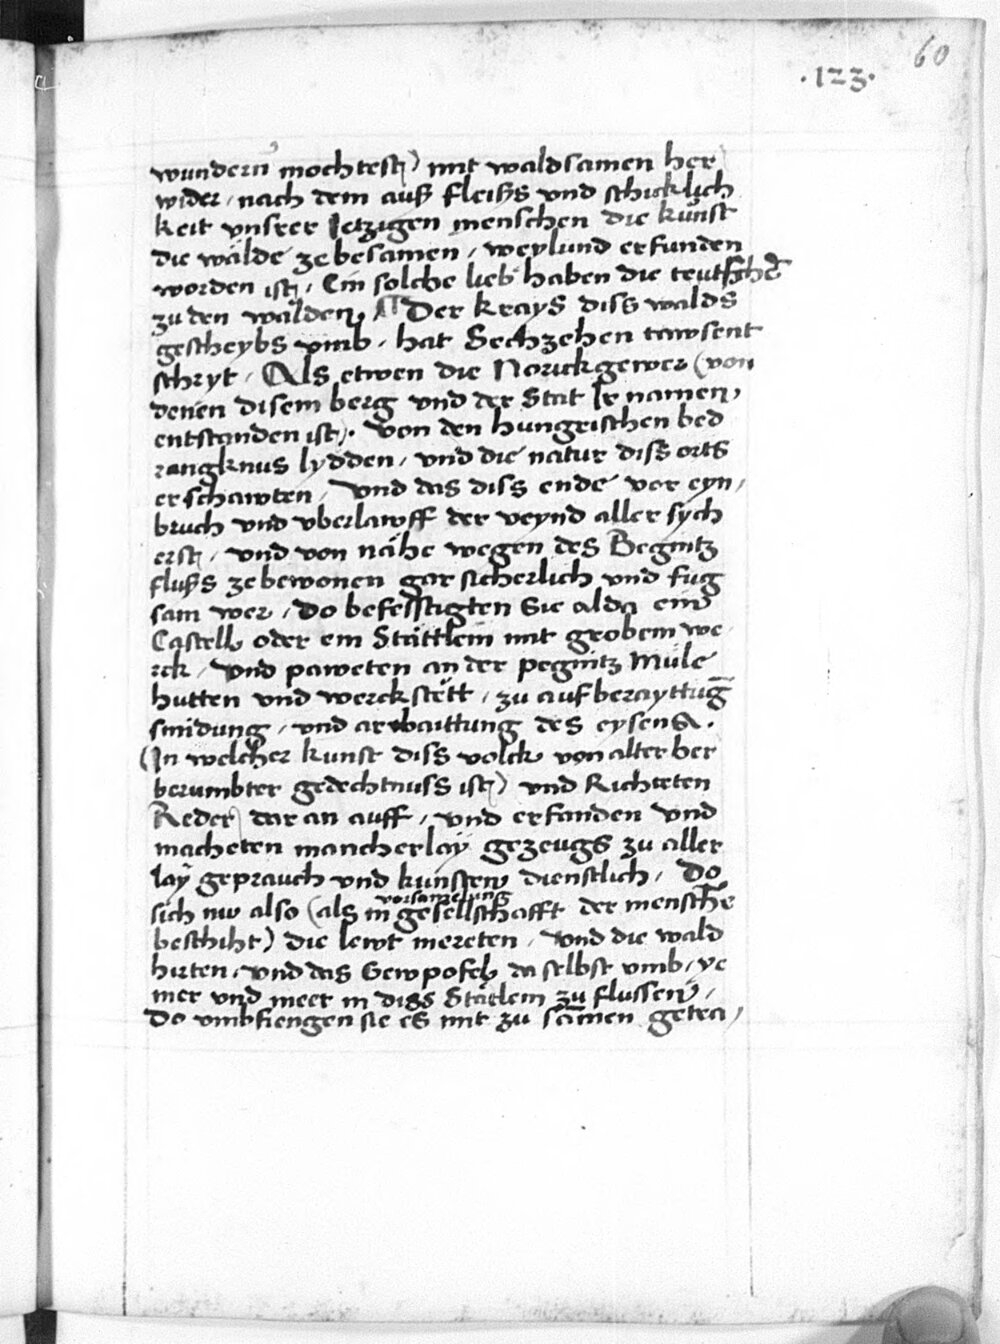 60
·123·
wundern mochtest) mit waldsamen her
wider, nach dem auß fleißs vnd schicklich
keit vnsrer Jetzigen menschen die kunst
die wälde ze besamen, weylund erfunden
worden ist, Ein solche lieb haben die teutschē
zu den wälden, Der krays diss walds
gescheybs vmb, hat Sechzehen tawsent
schryt, Als etwen die Norickgewer (von
denen disem berg vnd der Stat Ir namen,
entstanden ist). von den hungrischen bed
rangknus lydden, vnd die natur diss orts
erschawten, Vnd das diss ende vor eyn,
bruch vnd vberlawff der veynd aller sych
erst, vnd von nähe wegen des Begnitz
flußs ze bewonen gar sicherlich vnd fug
sam wer, Do befesstigten Sie alda ein
Castell oder ein Stättlein mit grobem we
rck, Vnd paweten an der pegnitz Müle
hutten vnd werckstett, zu aufberayttūg
smidung, vnd arbaittung des eysens.
(In welcher kunst diss volck von alter her
berumbter gedechtnuss ist) vnd Richteten
Reder daran auff, vnd erfanden vnd
macheten mancherlay gezeugs zu aller
lay geprauch vnd künsten dienstlich, Do
vorsamellung
sich nw also (als in gesellschafft der menschē
beschiht) die lewt mereten, Vnd die wald
hirten, vnd das Gewpofel da selbst vmb, ye
mer vnd meer in diss Stätlein zu flussen,
Do vmbfiengen sie es mit zu sāmen getra,